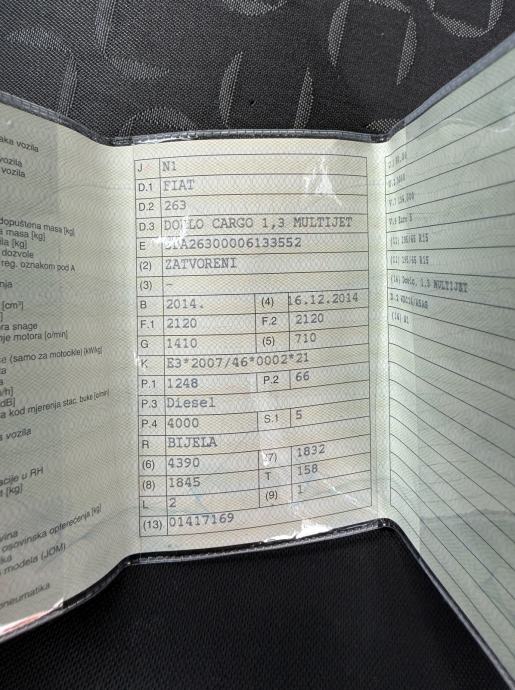 aka vozila
vozila
vozila
dopuštena masa [kg]
masa [kg]
la [kg]
dozvole
reg. oznakom pod A
nja
[cm³]
ra snage
nje motora [o/min]
e (samo za motocikle) [kW/kg]
la
/h]
dB]
a kod mjerenja stac. buke [o/min]
vozila
acije u RH
t [kg]
vina
osovinska opterećenja [kg]
ika
modela (JOM)
pneumatika
J N1
D.1 FIAT
D.2 263
D.3 DOBLO CARGO 1,3 MULTIJET
E 26300006133552
(2) ZATVORENI
(3) -
B 2014. (4) 16.12.2014
F.1 2120 F.2 2120
G 1410 (5) 710
K E3*2007/46*0002*21
P.1 1248 P.2 66
P.3 Diesel
P.4 4000 S.1 5
R BIJELA
(6) 4390 (7) 1832
(8) 1845 T 158
L 2 (9) 1
(13) 01417169
Euro 5
(11) 195/65 R15
(11) 195/65 R15
(14) Doblo, 1.3 MULTIJET